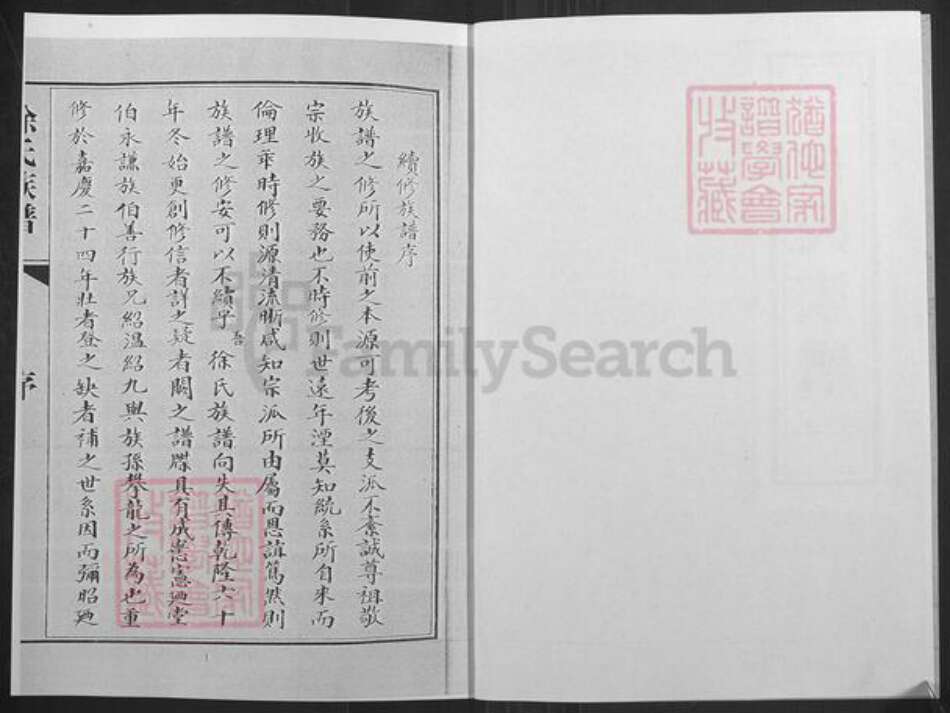 續修族譜序
族譜之修所以使前之本源可考後之支派不紊誠尊祖敬
宗收族之要務也不時修則世遠年湮莫知統系所自來而
倫理乖時修則源清流晰咸知宗派所由屬而恩誼篤然則
族譜之修安可以不續乎吾徐氏族譜向失其傳乾隆六十
年冬始更創修信者詳之疑者闕之譜牒具有成憲寔廼堂
伯永謙族伯善行族兄紹溫紹九與族孫攀龍之所為也重
修於嘉慶二十四年壯者登之缺者補之世系因而彌昭廼
徐氏族譜
序
猶他家
譜學會
收藏
猶他家
譜學會
收藏
FamilySearch